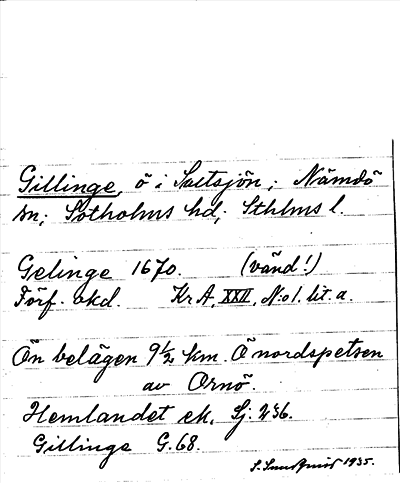 Gillinge, ö i Saltsjön; Nämdö
sn; Sotholms hd; Sthlms l.
Gelinge 1670. (vänd!)
Förf. okd. Kr A, XXII, N:o 1. lit. a.
Ön belägen 9½ km. Ö nordspetsen
av Ornö.
Hemlandet ek. Sj. 236.
Gillinge G. 68.
S. Sundqvist 1935.